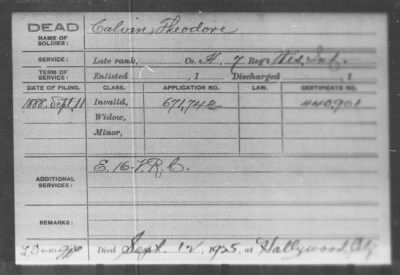 DEAD
NAME OF SOLDIER:
Calvin, Theodore
SERVICE:
Late rank, Co. H, 7 Reg't Wis. Inf.
TERM OF SERVICE:
Enlisted , 1 Discharged , 1
DATE OF FILING. CLASS. APPLICATION NO. LAW. CERTIFICATE NO.
1888, Sept. 11 Invalid, 671,742 440,901
Widow,
Minor,
ADDITIONAL SERVICES:
E. 16. V. R. C.
REMARKS:
Died Sept. 12, 1925, at Hollywood,